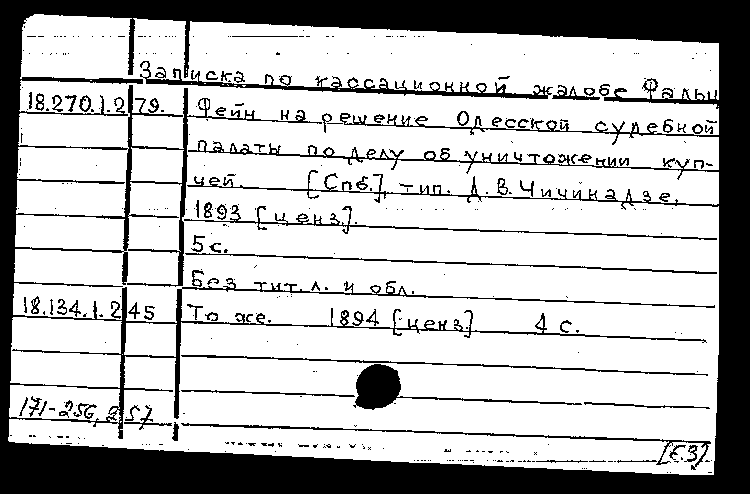 Записка по кассационной жалобе Фальц
18.270.1.279. Фейн на решение Одесской судебной
палаты по делу об уничтожении куп-
чей. [Спб.], тип. Д. В. Чичинадзе,
1893 [ценз].
5 с.
Без тит. л. и обл.
18.134.1.245 То же. 1894 [ценз] 4 с.
171-256, 257
[Е.З]